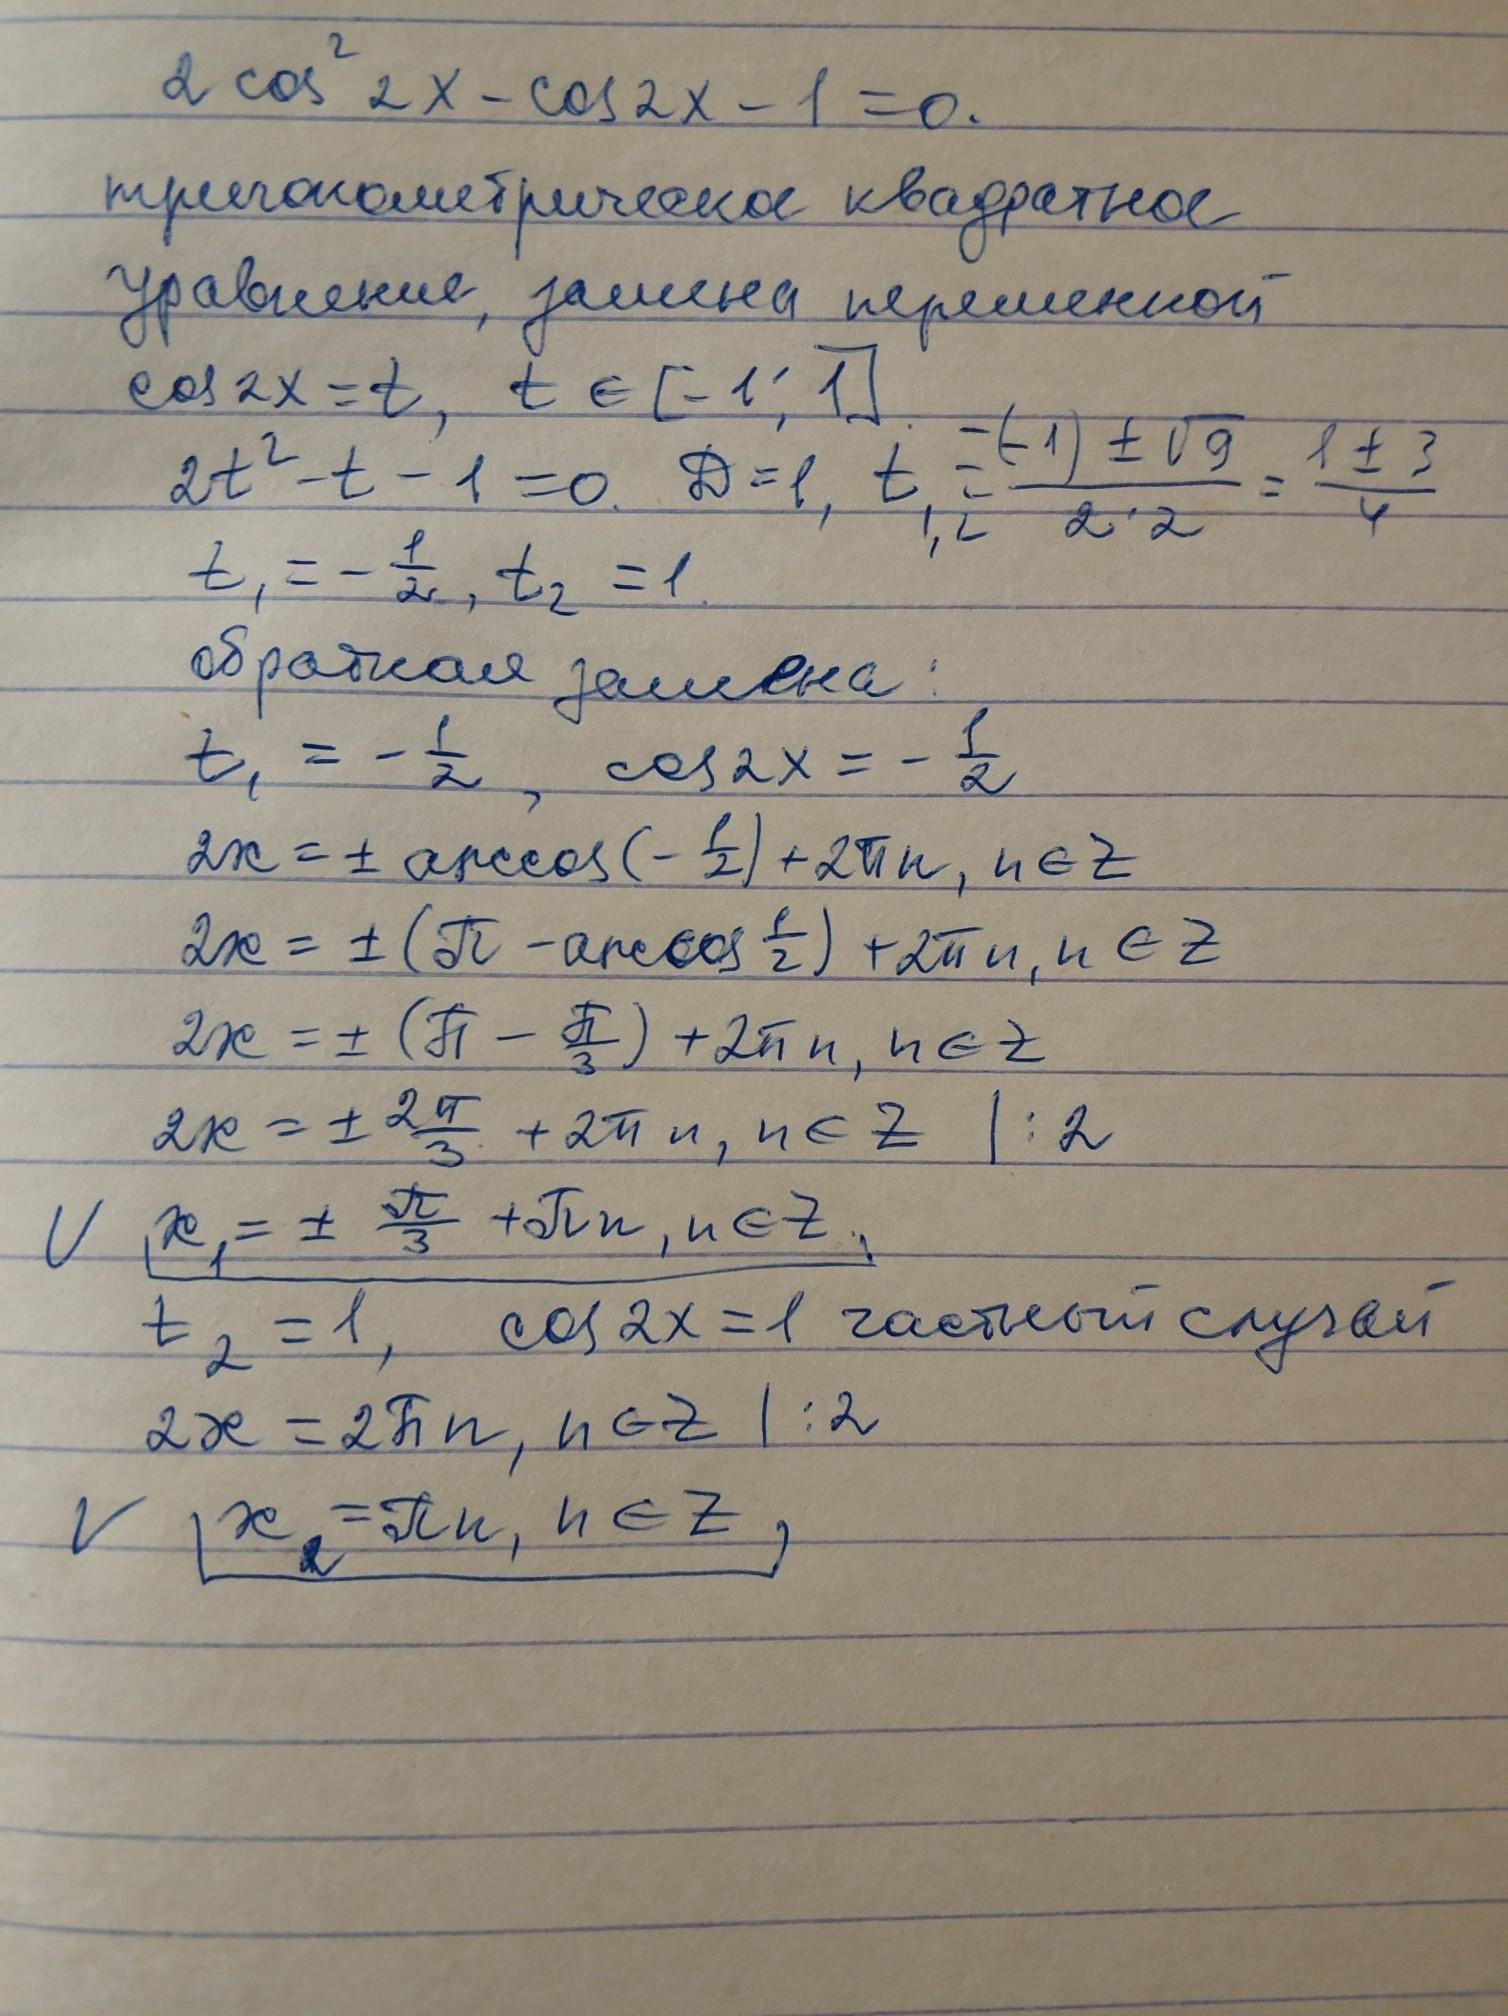 2 cos² 2x - cos 2x - 1 = 0.
тригонометрическое квадратное
уравнение, замена переменной
cos 2x = t, t ∈ [-1; 1].
2t² - t - 1 = 0. D = 1, t₁,₂ = (-(-1) ± √9)/(2·2) = (1 ± 3)/4
t₁ = -1/2, t₂ = 1.
обратная замена:
t₁ = -1/2, cos 2x = -1/2
2x = ± arccos(-1/2) + 2πn, n ∈ Z
2x = ± (π - arccos 1/2) + 2πn, n ∈ Z
2x = ± (π - π/3) + 2πn, n ∈ Z
2x = ± 2π/3 + 2πn, n ∈ Z |:2
V x₁ = ± π/3 + πn, n ∈ Z,
t₂ = 1, cos 2x = 1 частный случай
2x = 2πn, n ∈ Z |:2
V x₂ = πn, n ∈ Z,